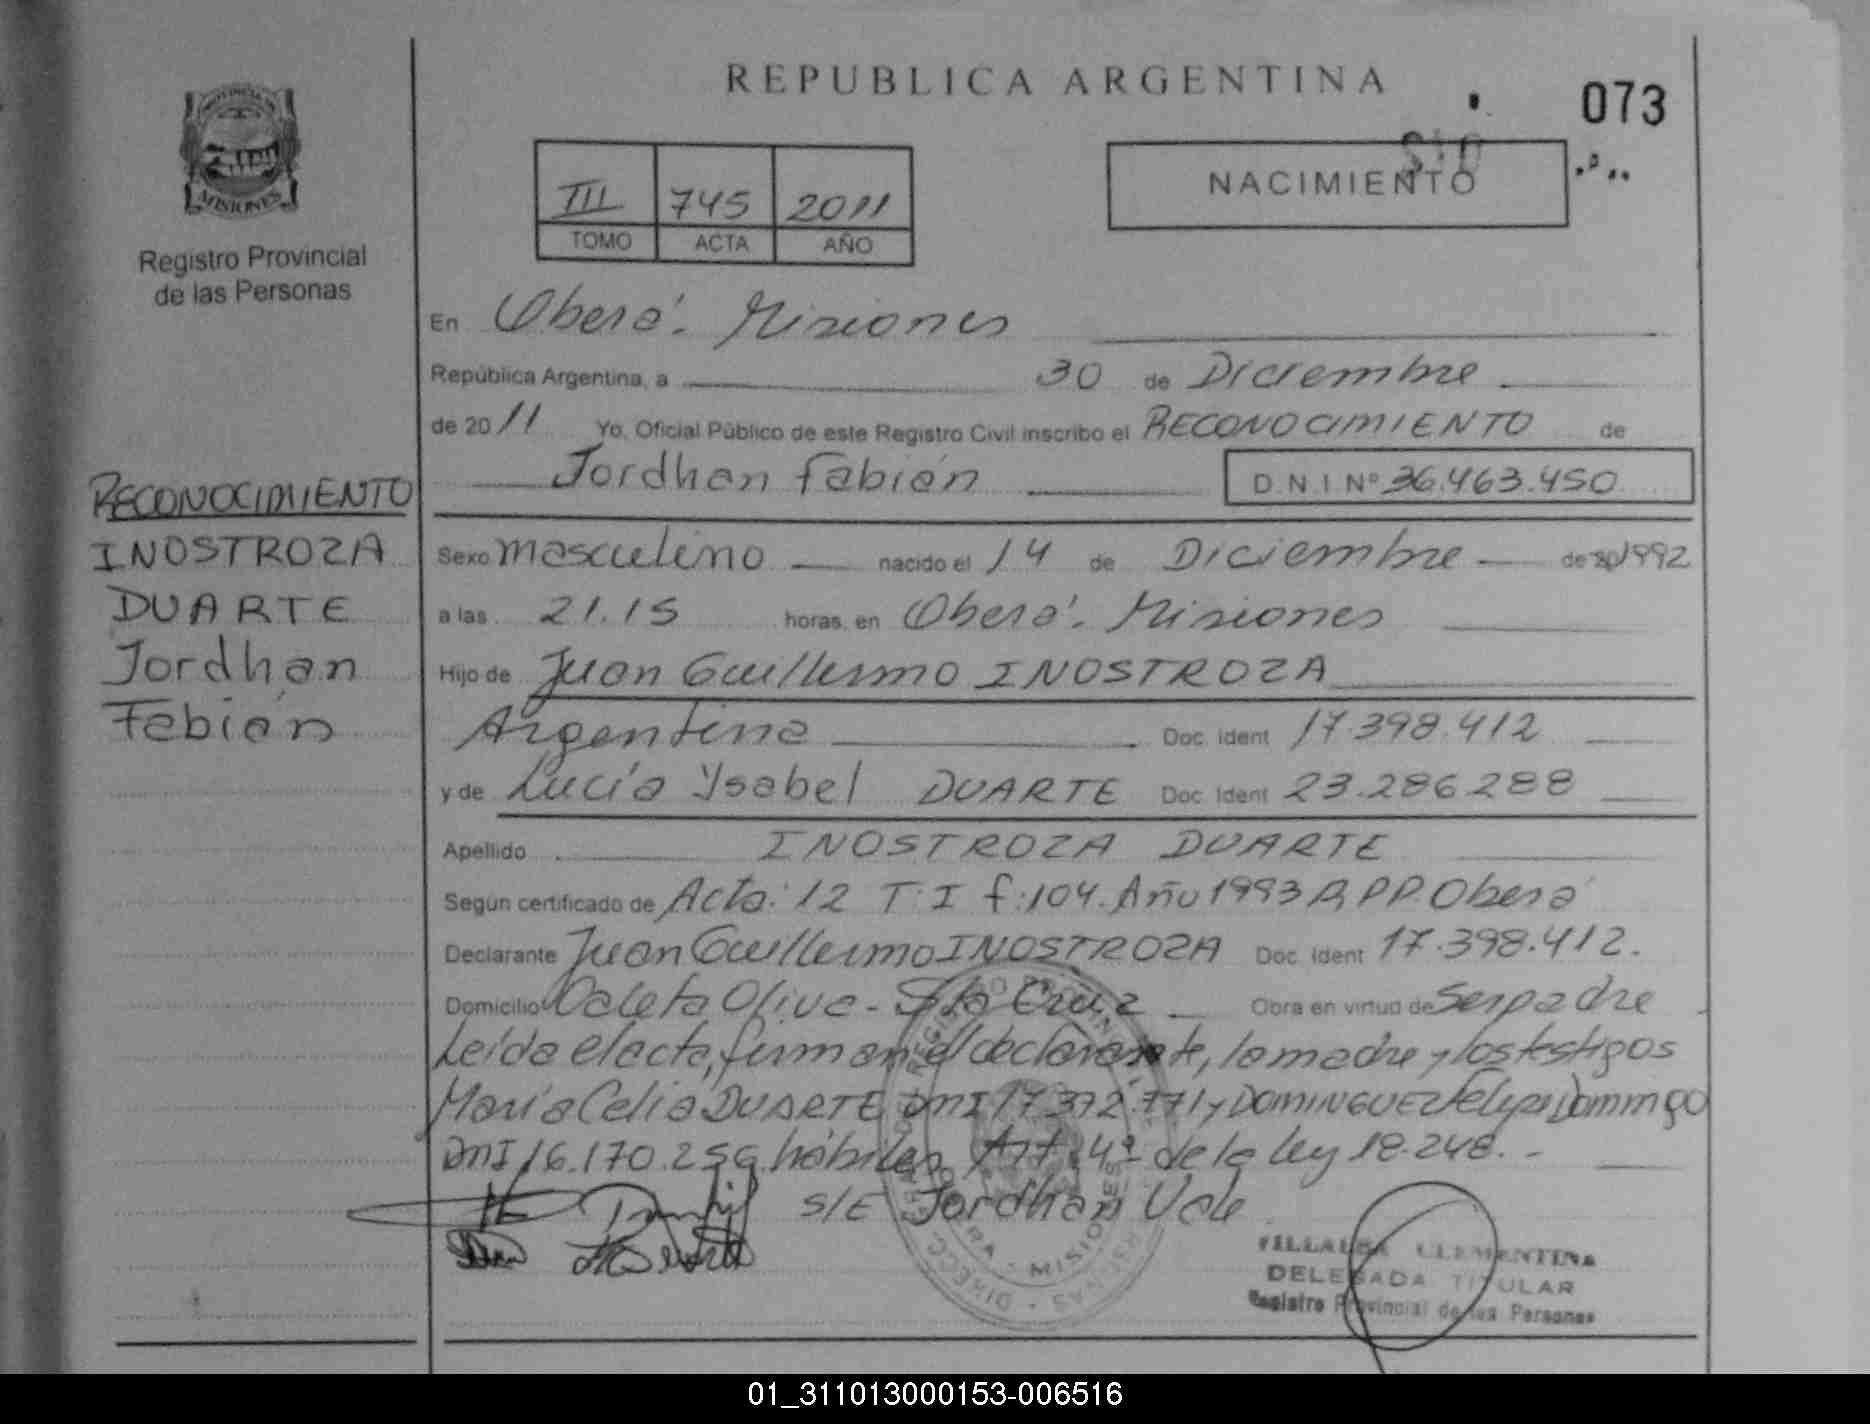 REPUBLICA ARGENTINA
073
PROVINCIA DE
MISIONES
Registro Provincial
de las Personas
III 745 2011
TOMO ACTA AÑO
NACIMIENTO
En Oberá. Misiones
República Argentina, a 30 de Diciembre
de 2011 Yo, Oficial Público de este Registro Civil inscribo el RECONOCIMIENTO de
Jordhan Fabián D.N.I Nº 36.463.450
RECONOCIMIENTO
INOSTROZA
DUARTE
Jordhan
Fabián
Sexo masculino nacido el 14 de Diciembre de 1992
a las 21.15 horas, en Oberá. Misiones
Hijo de Juan Guillermo INOSTROZA
Argentina Doc. Ident 17.398.412
y de Lucía Ysabel DUARTE Doc. Ident 23.286.288
Apellido INOSTROZA DUARTE
Según certificado de Acta: 12 T: I f: 104. Año 1993 R.P.P. Oberá
Declarante Juan Guillermo INOSTROZA Doc. Ident 17.398.412.
Domicilio Caleta Olivia - Sta Cruz Obra en virtud de Ser padre
Leída el acta, firman el declarante, la madre y los testigos
María Celia DUARTE DNI 17.392.771 y DOMINGUEZ Felipe Domingo
DNI 16.170.259 hábiles Art. 4º de la ley 18.248. -
S/E Jordhan Vale
VILLALBA CLEMENTINA
DELEGADA TITULAR
Registro Provincial de las Personas
01_311013000153-006516